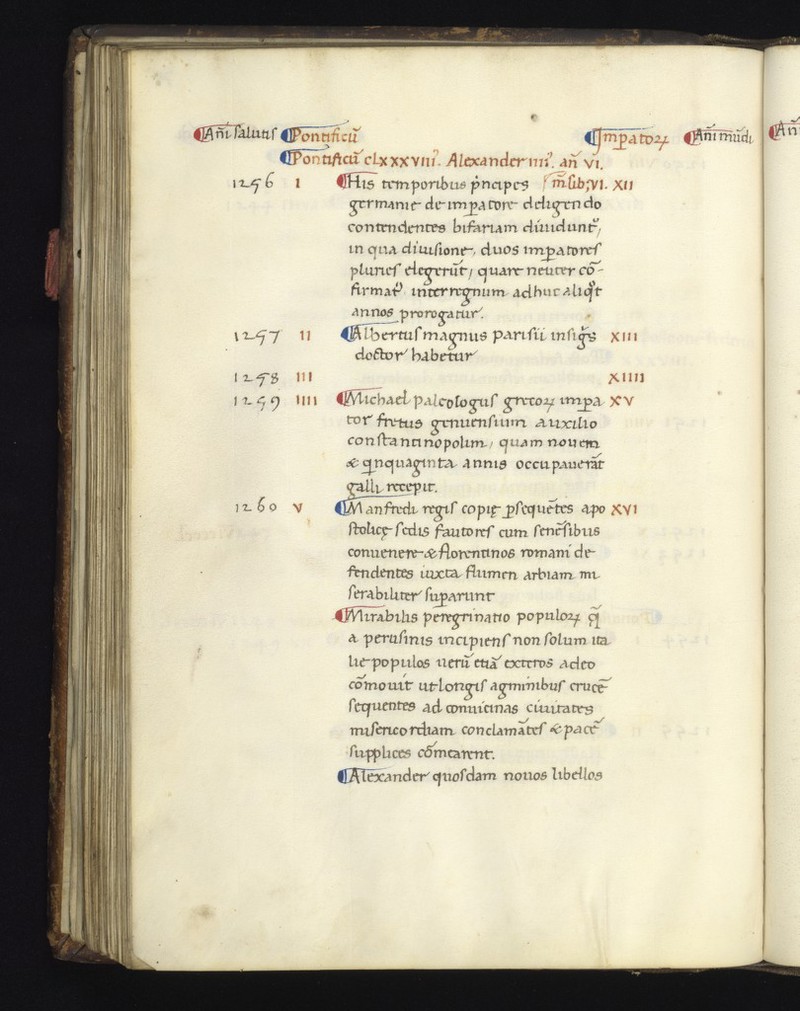 Añi salutis Pontificũ Imperatoꝝ Añi mũdi Añ
Pontificũ clxxxviii⁹. Alexander iiii⁹. añ vi.
1256 I His temporibus prĩcipes VI. XII
germanie de imperatore deligendo
contendentes bifariam diuidunt᷑,
in qua diuisione, duos imperatores
plures elegerũt, quare neuter cõ-
firmat᷑ interregnum adhuc aliqͦt
annos prorogatur.
1257 II Albertus magnus parisii insigͥs XIII
doctor habetur
1258 III XIIII
1259 IIII Michael paleologus grecoꝝ impera XV
tor fretus genuensium auxilio
constantinopolim, quam nouem
& qͥnquaginta annis occupauerãt
galli recepit.
1260 V Manfredi regis copię ꝑsequẽtes apo XVI
stolicę sedis fautores cum senẽsibus
conuenere & florentinos romani de
fendentes iuxta flumen arbiam mi
serabiliter suꝑarunt
Mirabilis peregrinatio populoꝝ q̃
a perusinis incipiens non solum ita
lie populos uerũ etiã exteros adeo
cõmouit ut longis agminibus crucẽ
sequentes ad conuicinas ciuitates
misericordiam conclamãtes & pacẽ
supplices cõmearent.
Alexander quosdam nouos libellos